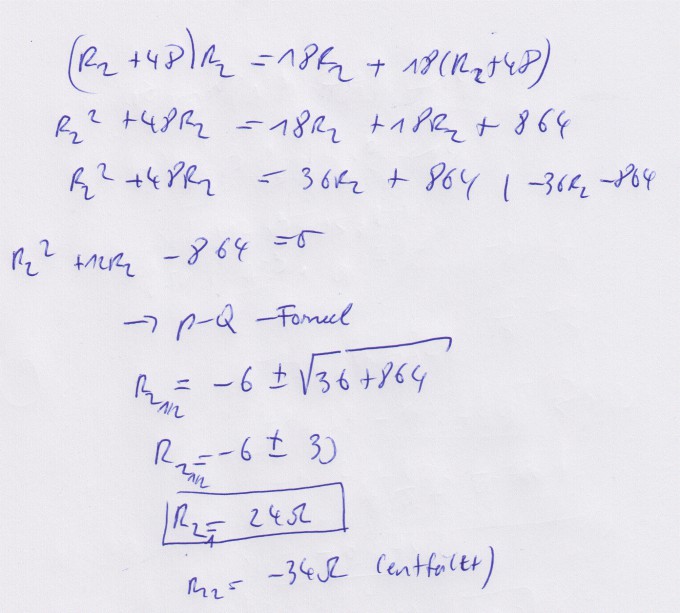 (R₂ + 48) R₂ = 18R₂ + 18(R₂+48)
R₂² + 48R₂ = 18R₂ + 18R₂ + 864
R₂² + 48R₂ = 36R₂ + 864 | -36R₂ -864
R₂² + 12R₂ - 864 = 0
→ p-Q-Formel
R₂₁/₂ = -6 ± √36 + 864
R₂₁/₂ = -6 ± 30
R₂₁ = 24Ω
R₂₂ = -34Ω (entfällt)